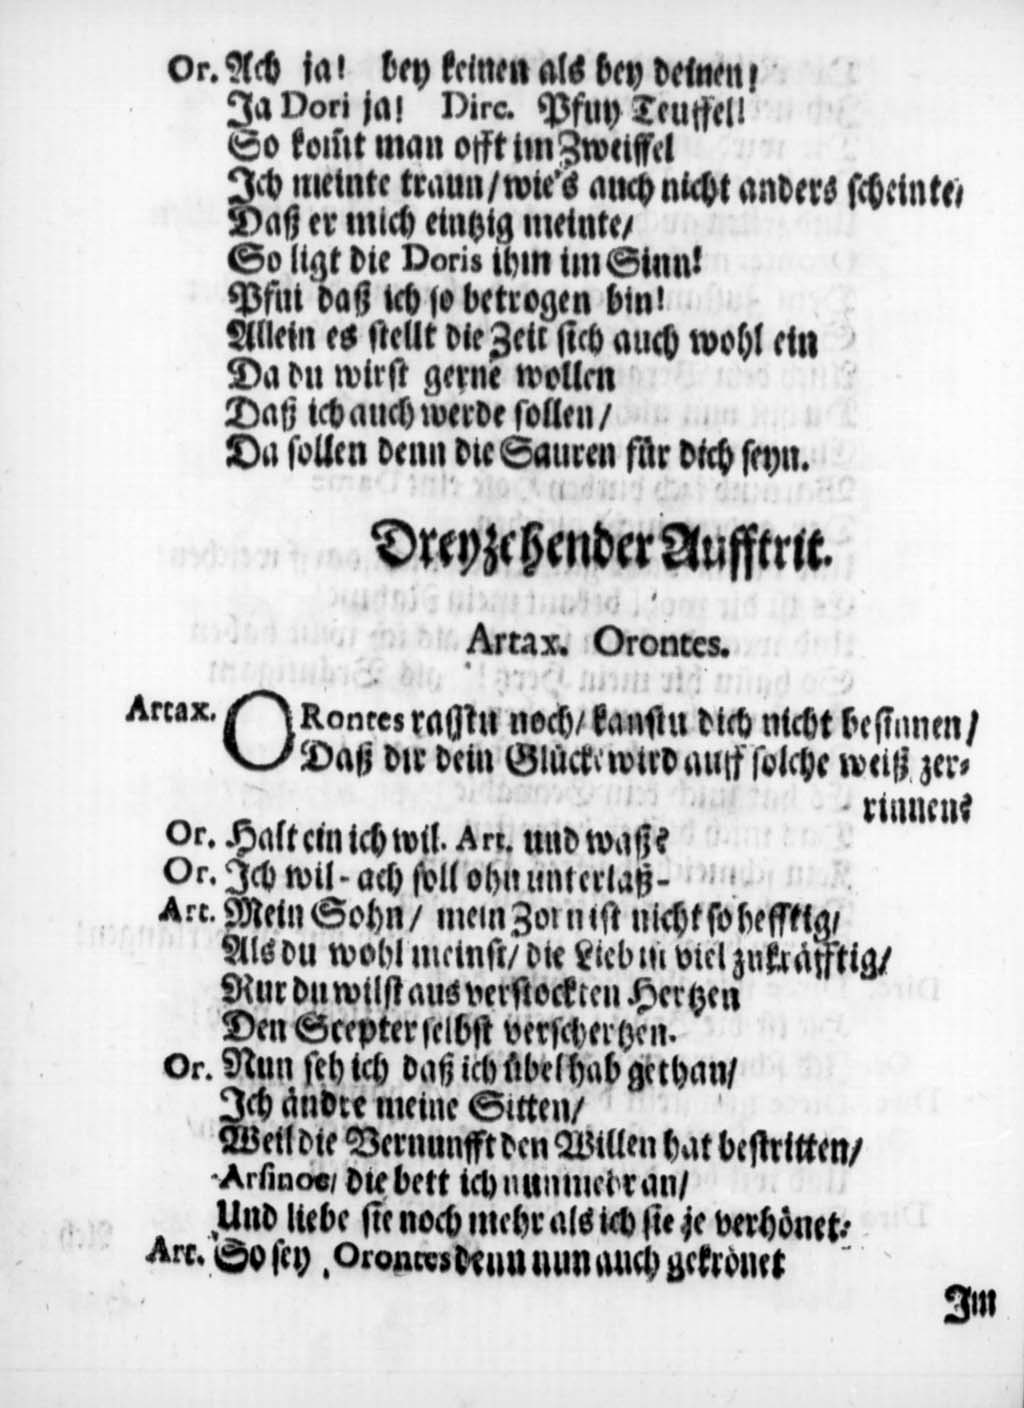 Or. Ach ja! bey keinen als bey deinen!
Ja Dori ja! Dirc. Pfuy Teuffel!
So kom̃t man offt im Zweiffel
Ich meinte traun/ wie's auch nicht anders scheinte/
Daß er mich eintzig meinte/
So ligt die Doris ihm im Sinn!
Pfui daß ich so betrogen bin!
Allein es stellt die Zeit sich auch wohl ein
Da du wirst gerne wollen
Daß ich auch werde sollen/
Da sollen denn die Sauren für dich seyn.
Dreyzehender Aufftrit.
Artax. Orontes.
Artax. ORontes rasstu noch/ kanstu dich nicht besinnen/
Daß dir dein Glücke wird auff solche weiß zer-
rinnen?
Or. Halt ein ich wil. Art. und waß?
Or. Ich wil - ach soll ohn unterlaß -
Art. Mein Sohn/ mein Zorn ist nicht so hefftig/
Als du wohl meinst/ die Lieb in viel zu kräfftig/
Nur du wilst aus verstockten Hertzen
Den Scepter selbst verschertzen.
Or. Nun seh ich daß ich übel hab gethan/
Ich ändre meine Sitten/
Weil die Vernunfft den Willen hat bestritten/
Arsinoe/ die bett ich nunmehr an/
Und liebe sie noch mehr als ich sie je verhönet:
Art. So sey Orontes denn nun auch gekrönet
Im